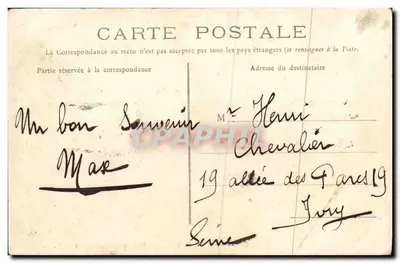 CARTE POSTALE
La Correspondance au recto n'est pas acceptée par tous les pays étrangers (se renseigner à la Poste)
Partie réservée à la correspondance
Adresse du destinataire
Un bon Souvenir
Max
Mr Henri
Chevalier
19 allée des Parcs 19
Ivry
Seine